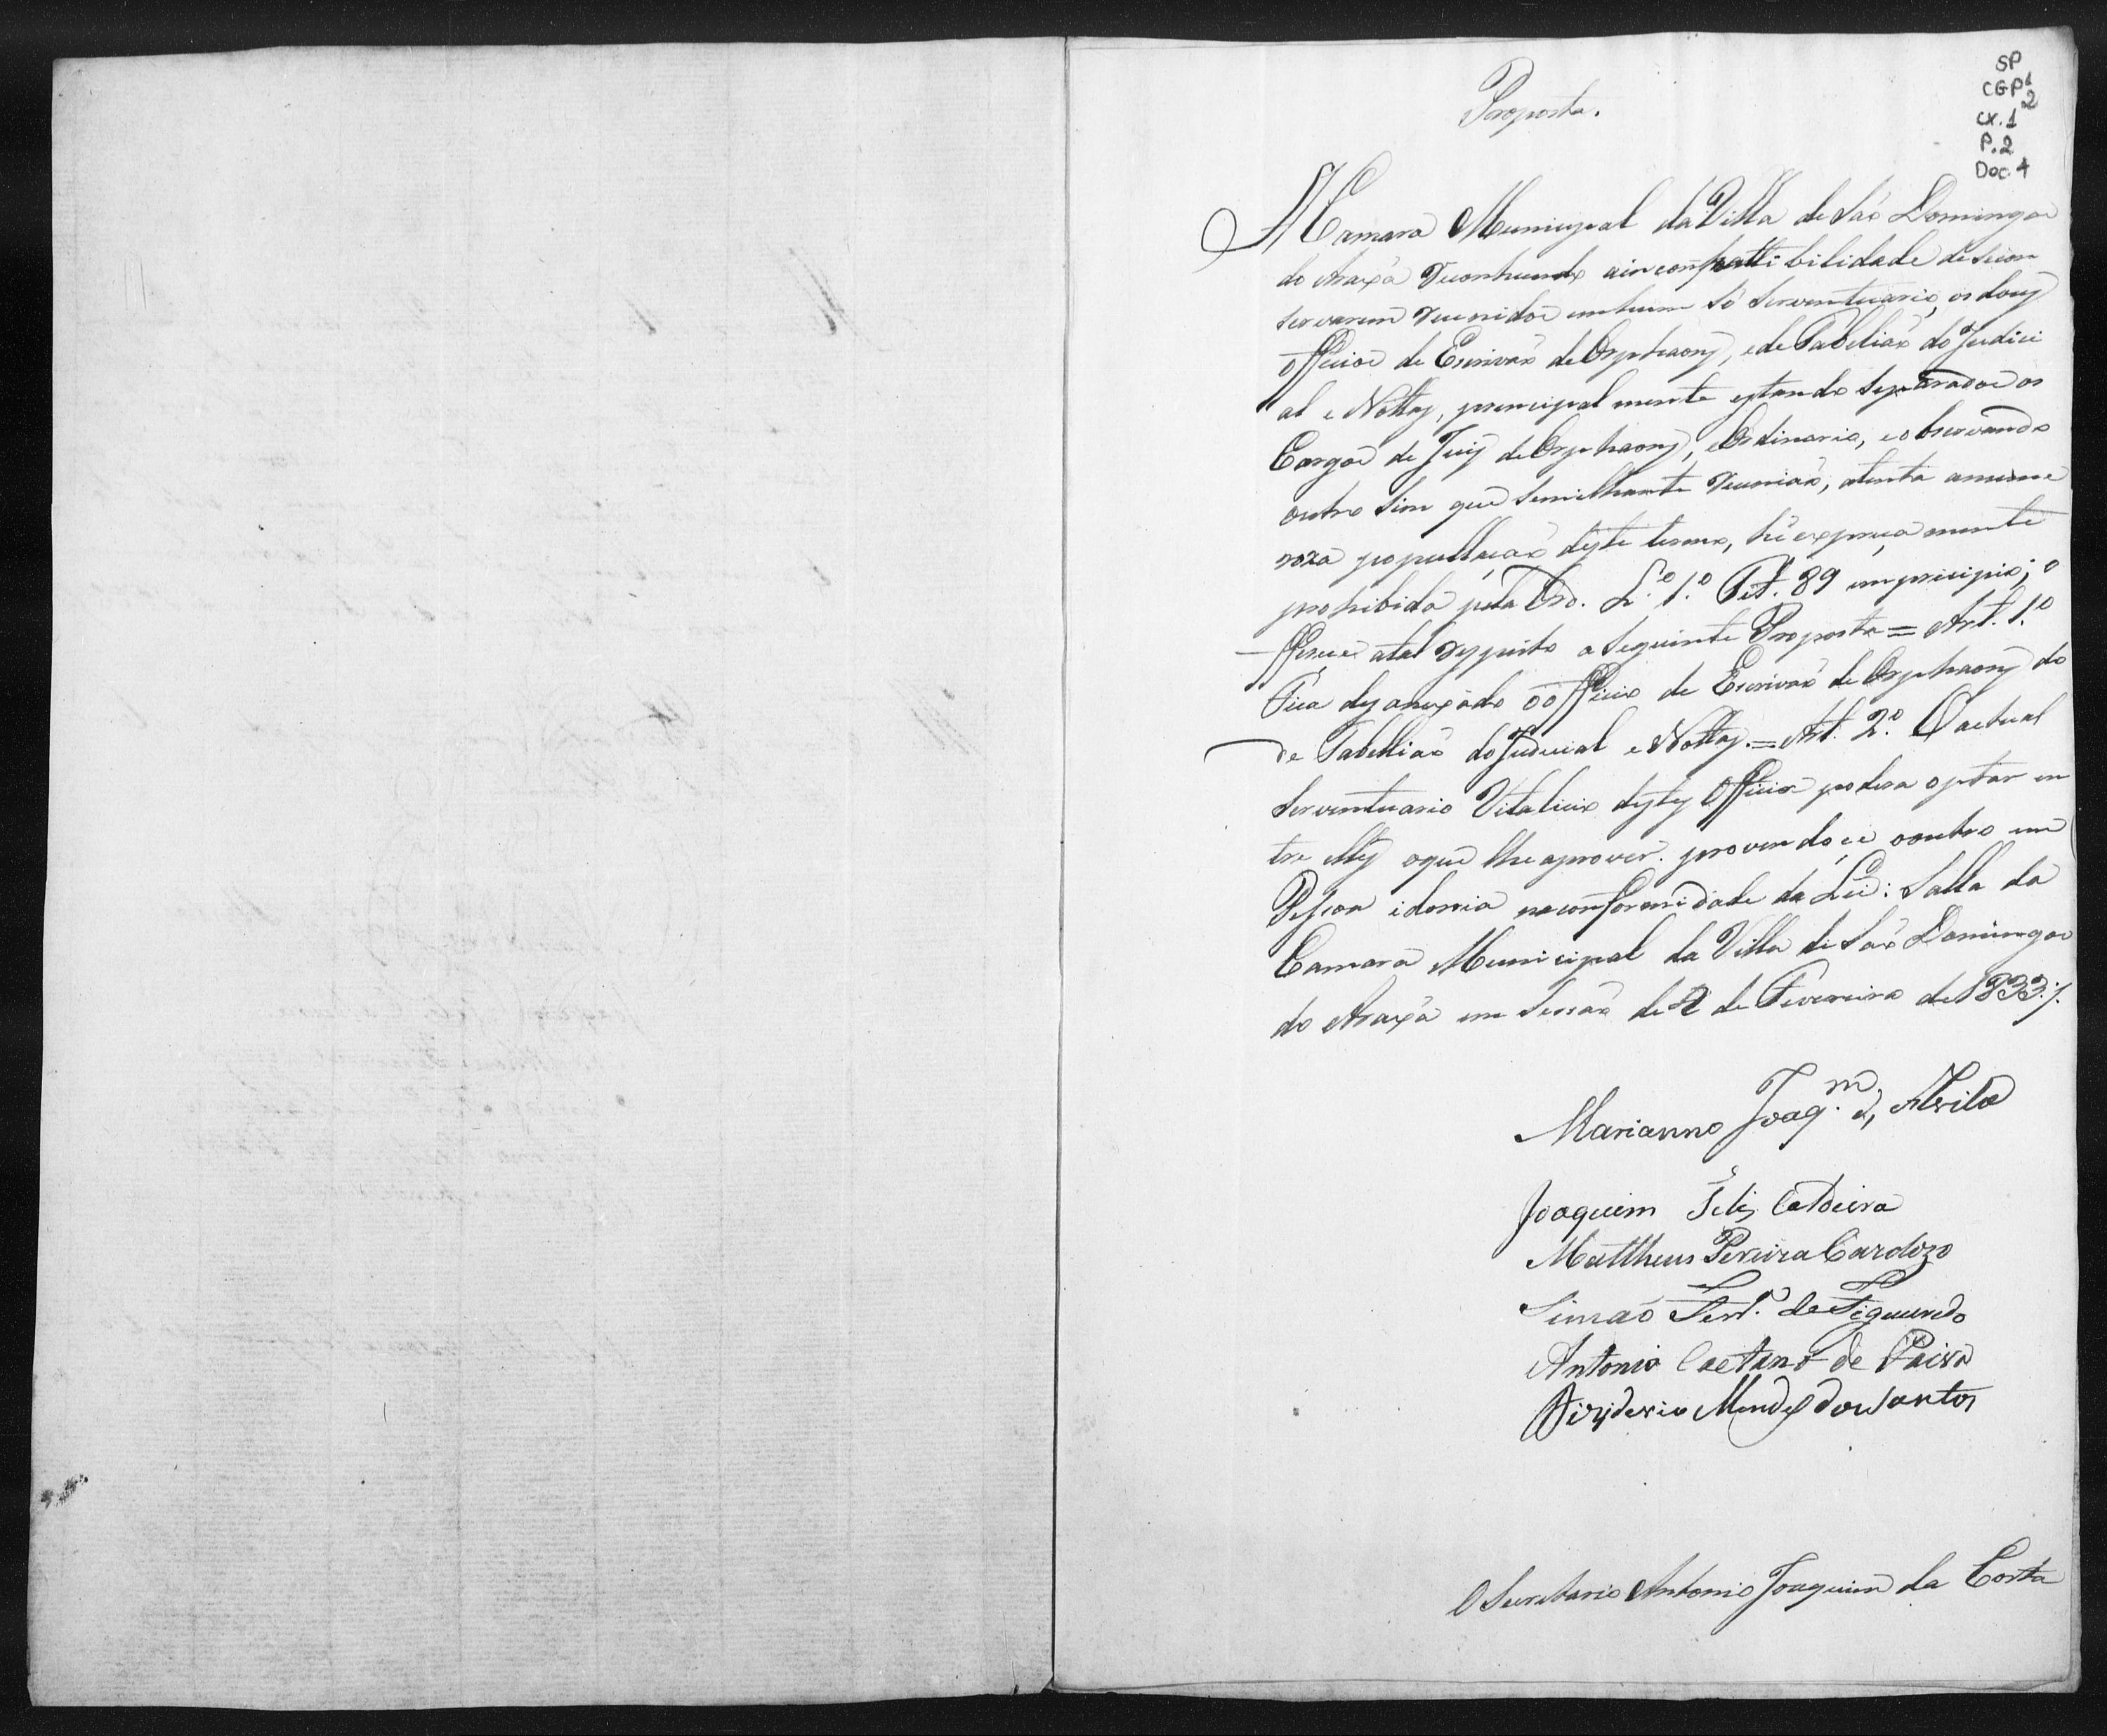 SP
CGP¹2
CX. 1
P. 2
Doc. 4
Proposta.
A Camara Municipal da Villa de Saõ Domingos
do Araxá reconhecendo a incompatti bilidade de se con
servarem reunidos em hum só serventuario, os douz
officios de Escrivaõ de Orphaons, e de Tabeliaõ do Judici
al e Nottas, principal mente estando separados os
Cargos de Juiz de Orphaons, e Ordinario, e observando
outro sim que semilhante reuniaõ, atenta a nume
roza populaçaõ deste termo, hé expreça mente
prohibida pela Ord. L.º 1.º Tit. 89 em pricipio; o
fferece a tal respeito a seguinte Proposta = Art. 1.º
Fica desanexado o officio de Escrivaõ de Orphaons do
de Tabelliaõ do Judicial e Nottas. = Art. 2.º O actual
serventuario Vitalicio destes Officios podera optar en
tre elles o que lhe aprover. provendo ce o outro em
Pessoa idonia na conformidade da Lei: Salla da
Camara Municipal da Villa de Saõ Domingos
do Araxá em Sessaõ de 2 de Fevereiro de 1833 ./.
Marianno Joaq.m d' Avila
Joaquim Felis Caldeira
Mattheus Pereira Cardozo
Simaõ Ferr.ª de Figueiredo
Antonio Caetano de Paiva
Disiderio Mendes dos Santos
O Secretario Antonio Joaquim da Costa